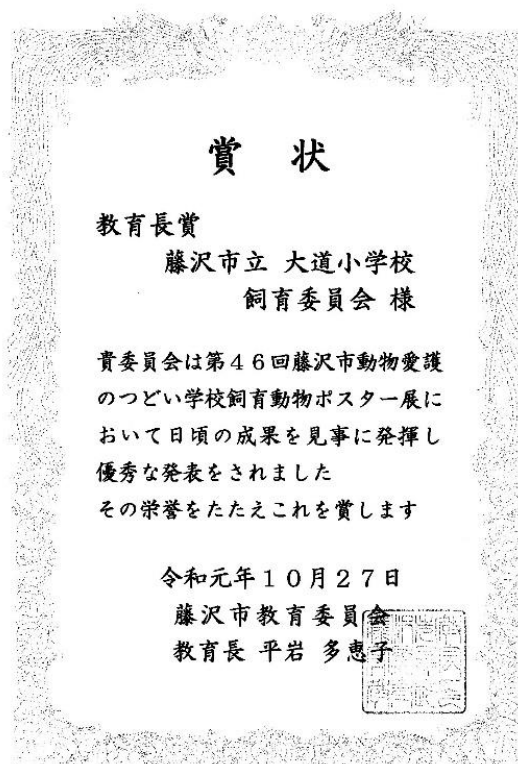 賞 状
教育長賞
藤沢市立 大道小学校
飼育委員会 様
貴委員会は第46回藤沢市動物愛護
のつどい学校飼育動物ポスター展に
おいて日頃の成果を見事に発揮し
優秀な発表をされました
その栄誉をたたえこれを賞します
令和元年10月27日
藤沢市教育委員会
教育長 平岩 多恵子